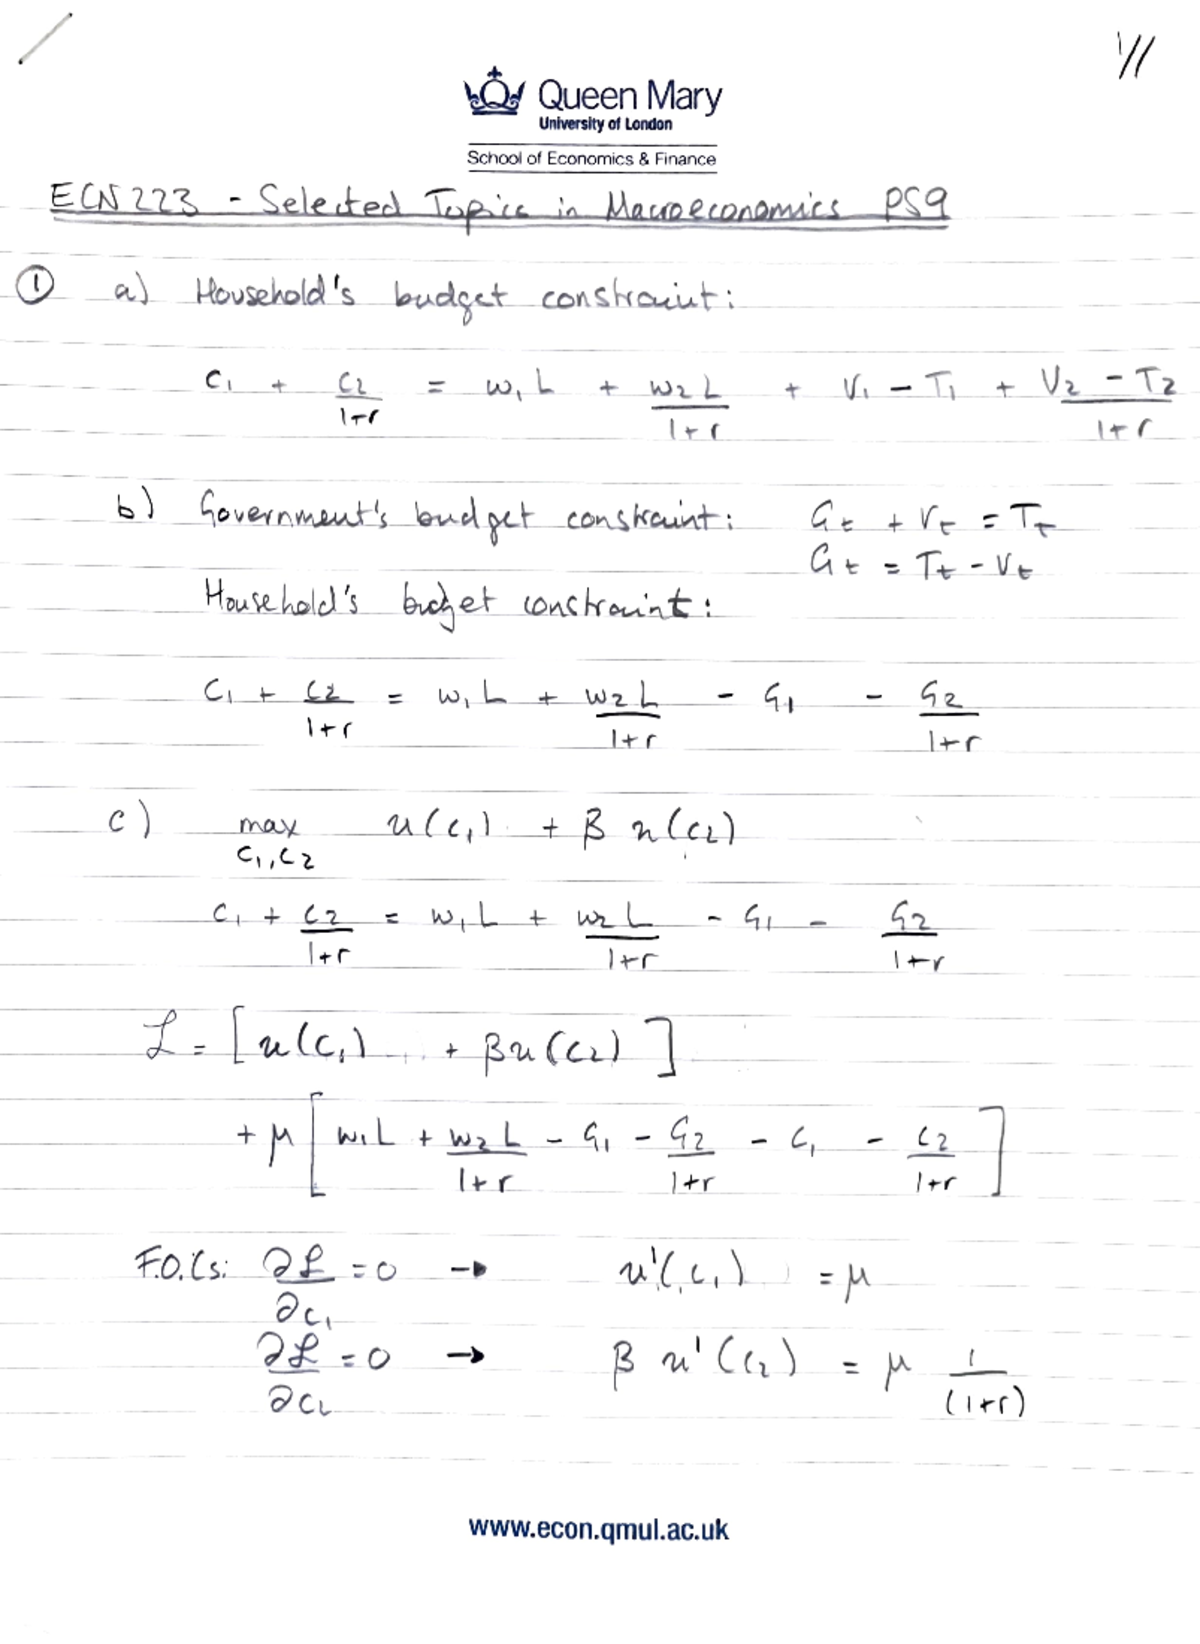 1/
Queen Mary
University of London
School of Economics & Finance
ECN223 - Selected Topics in Macroeconomics PS9
① a) Household's budget constraint:
C₁ + C₂/(1+r) = w₁L + w₂L/(1+r) + V₁ - T₁ + (V₂ - T₂)/(1+r)
b) Government's budget constraint: Gt + Vt = Tt
Gt = Tt - Vt
Household's budget constraint:
C₁ + C₂/(1+r) = w₁L + w₂L/(1+r) - G₁ - G₂/(1+r)
c) max u(c₁) + β u(c₂)
C₁, C₂
C₁ + C₂/(1+r) = w₁L + w₂L/(1+r) - G₁ - G₂/(1+r)
ℒ = [u(c₁) + βu(c₂)]
+ μ [w₁L + w₂L/(1+r) - G₁ - G₂/(1+r) - C₁ - C₂/(1+r)]
F.O.Cs: ∂ℒ/∂C₁ = 0 → u'(c₁) = μ
∂ℒ/∂C₂ = 0 → β u'(c₂) = μ 1/(1+r)
www.econ.qmul.ac.uk